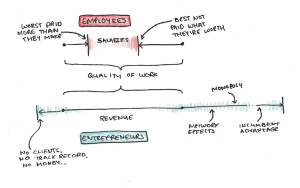 EMPLOYEES
WORST PAID
MORE THAN
THEY MAKE
SALARIES
BEST NOT
PAID WHAT
THEY'RE WORTH
QUALITY OF WORK
MONOPOLY
REVENUE
NETWORK
EFFECTS
INCUMBENT
ADVANTAGE
ENTREPRENEURS
NO CLIENTS,
NO TRACK RECORD,
NO MONEY...